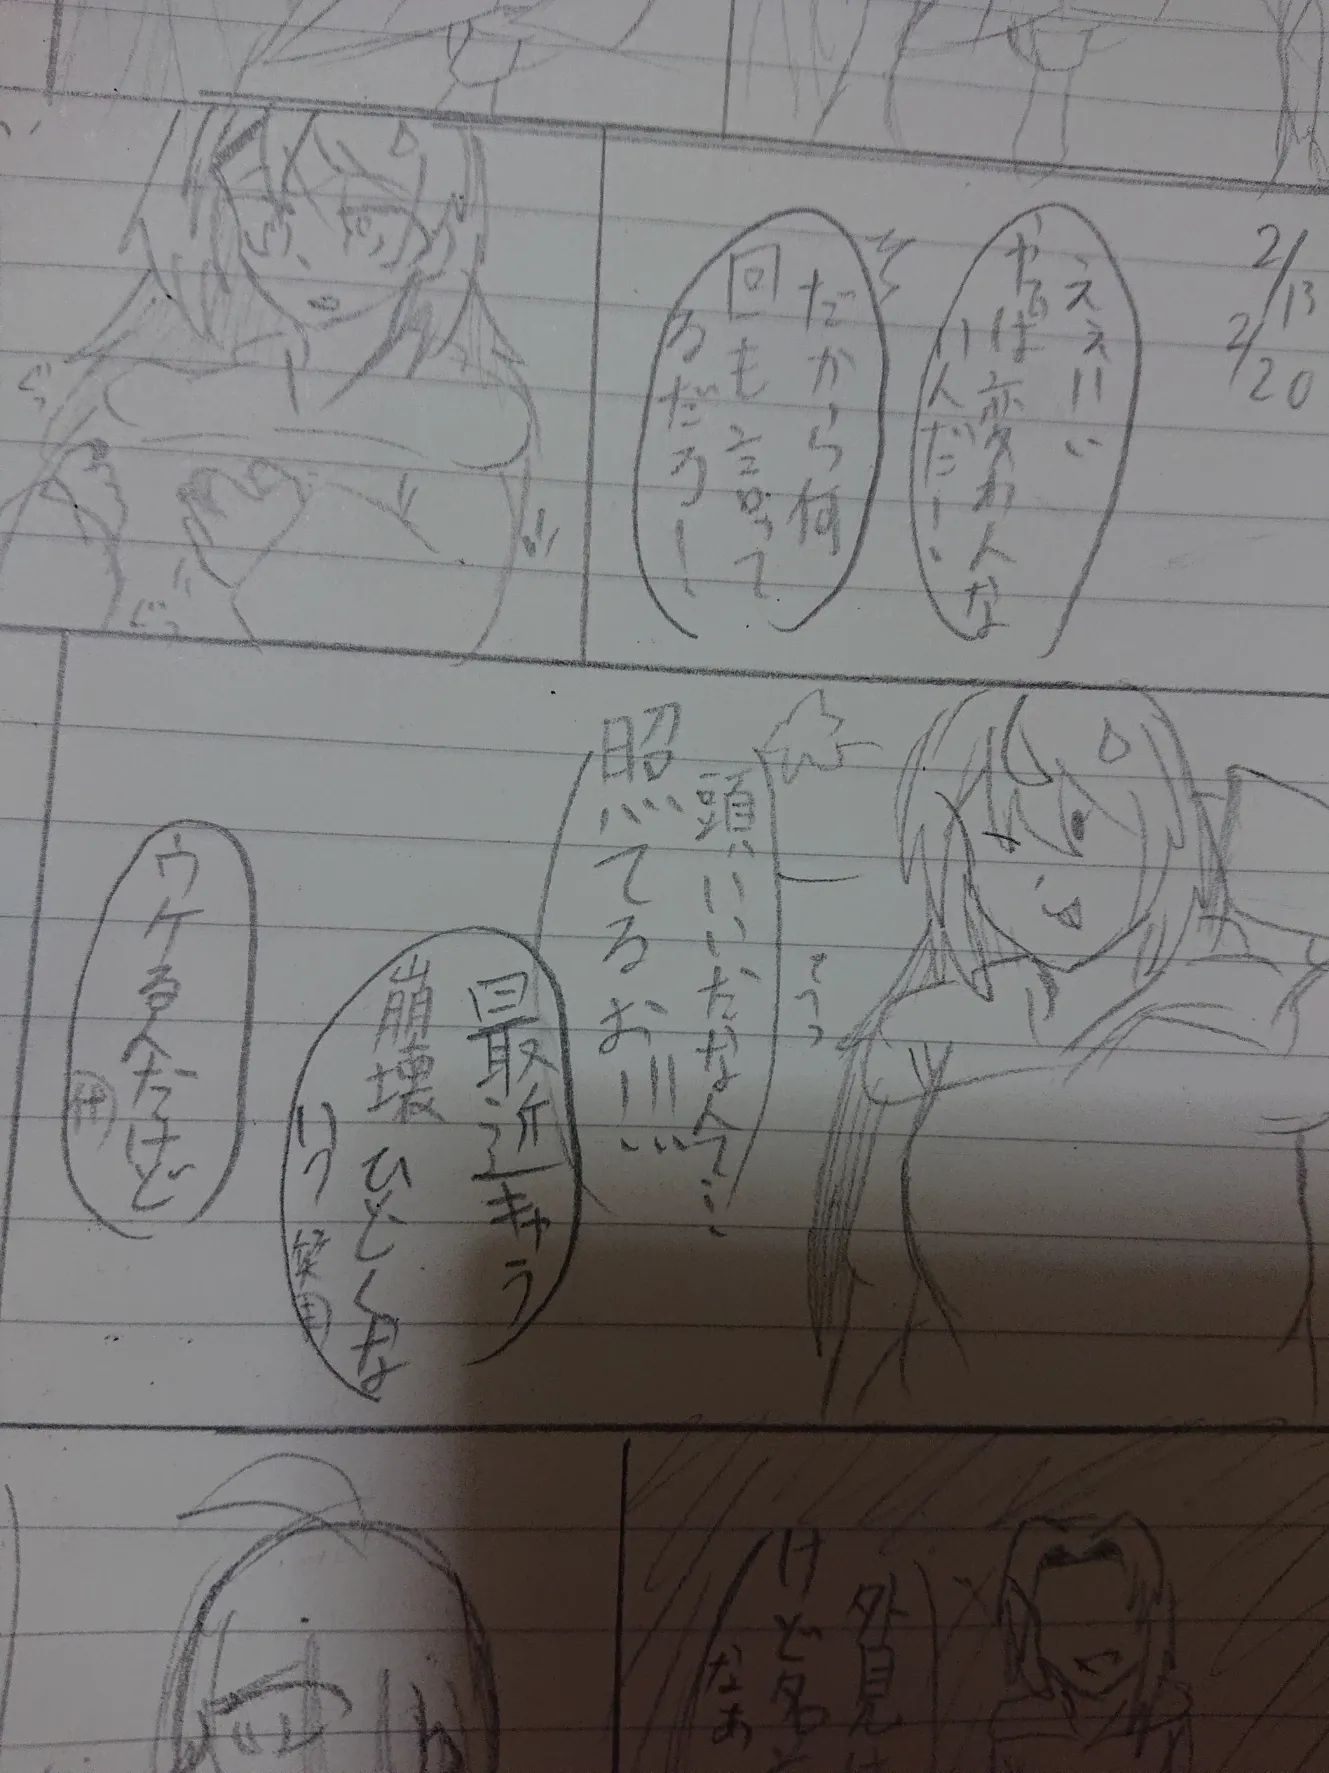 2/13
2/20
ええいい
やはが変わんな
いんだ!
だから何
回も言って
るだろー
ぐっ
ぐっ
頭いいだなんて…
照てるお!!!
最近キャラ
崩壊ひどくな
いっ
ウケるんだけど
外見は
けど名
なあ